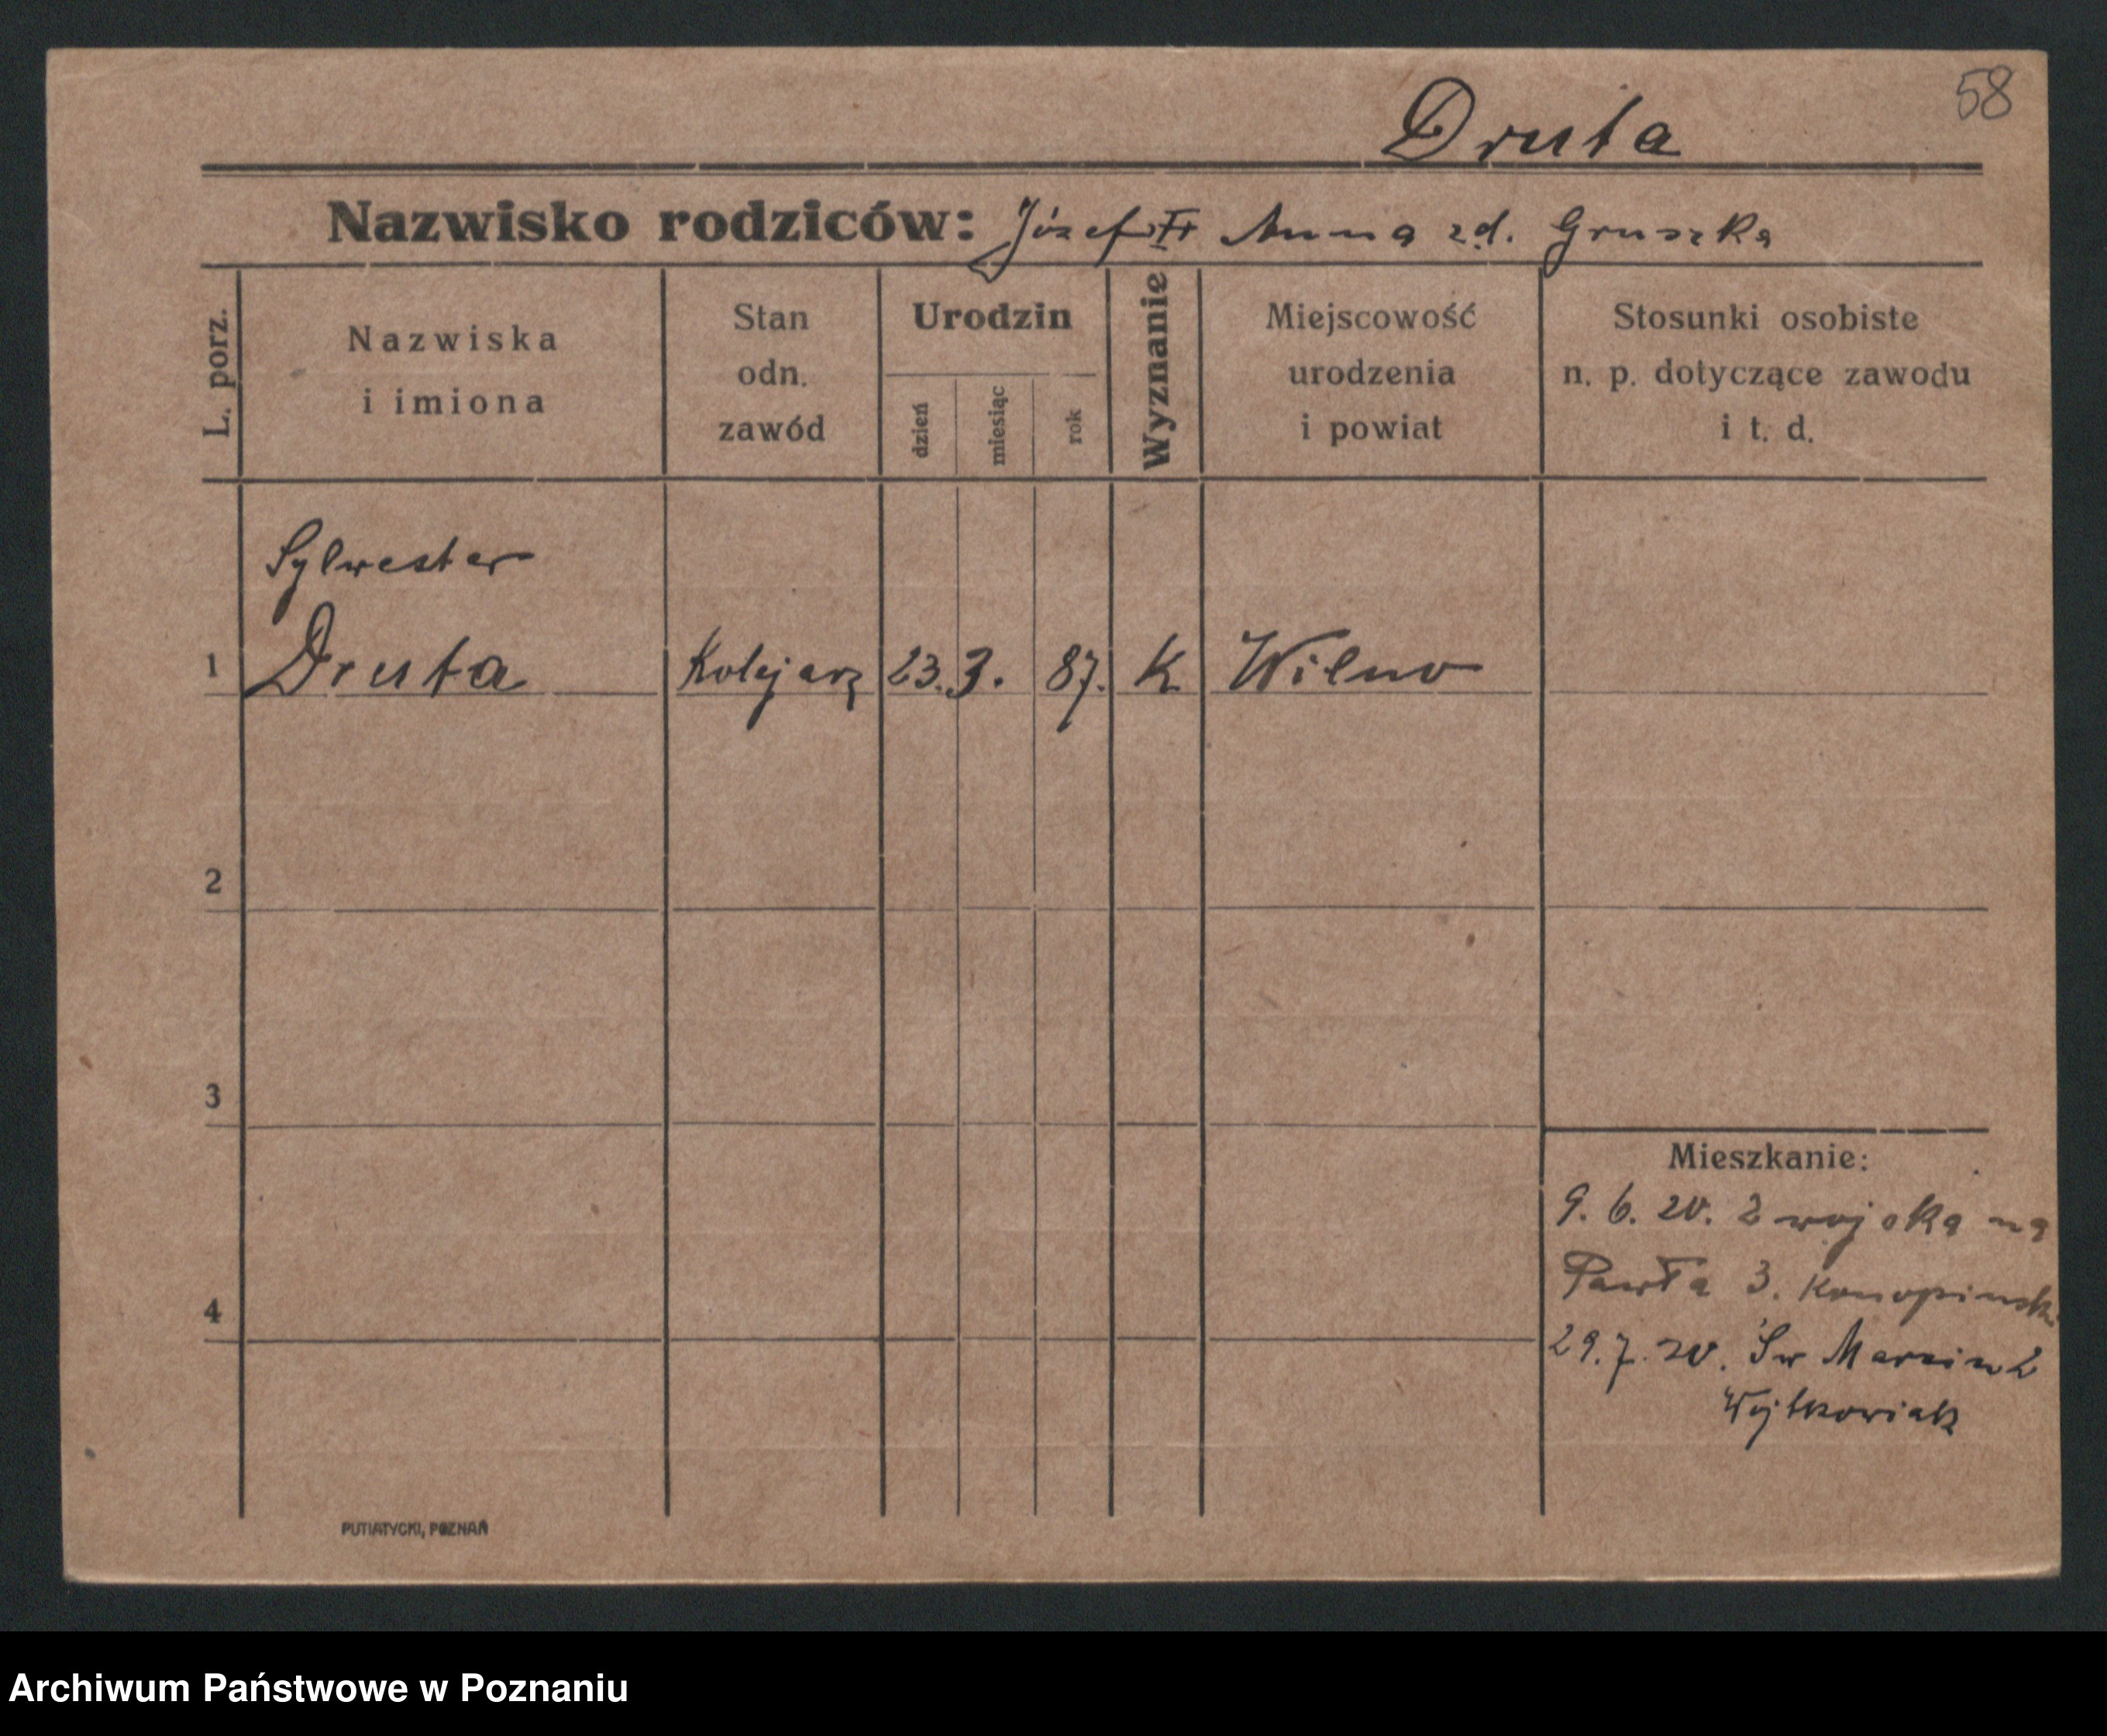 58
Druta
Nazwisko rodziców: Józef Anna zd. Gruszka
L. porz.
Nazwiska
i imiona
Stan
odn.
zawód
Urodzin
dzień
miesiąc
rok
Wyznanie
Miejscowość
urodzenia
i powiat
Stosunki osobiste
n. p. dotyczące zawodu
i t. d.
Sylwester
1 Druta Kolejarz 23. 3. 87. K. Wilno
2
3
4
Mieszkanie:
9. 6. 20. z wojska na
Pawła 3. Konopinski
29. 7. 20. Św Marcin 2
Wojtkowiak
PUTIATYCKI, POZNAŃ
Archiwum Państwowe w Poznaniu